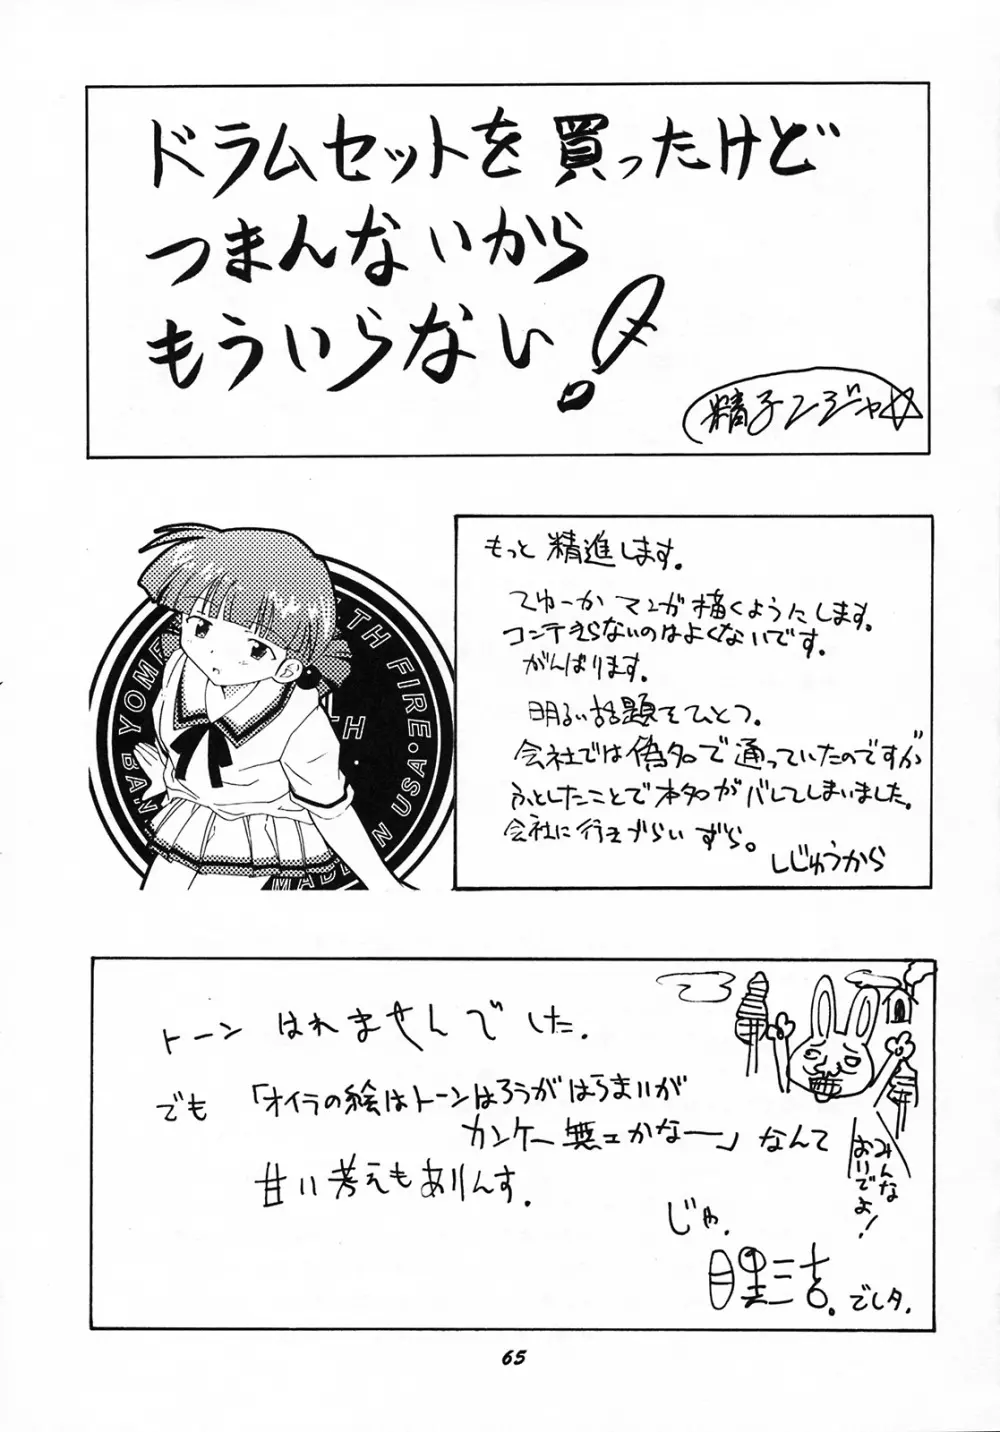 ドラムセットを買ったけど
つまんないから
もういらない!
精子ンジャ☆
YOM
TH FIRE・
USA・
BAN
MADE
N
TH
もっと精進します。
てゆーかマンガ描くようにします。
コンテきらないのはよくないです。
がんばります。
明るい話題をひとつ。
会社では偽名で通っていたのですが
ふとしたことで本名がバレてしまいました。
会社に行きづらいずら。
しじゅうから
トーン はれませんでした.
でも 「オイラの絵はトーンはろうがはらまいが
カンケー無エかなー」なんて
甘い考えもありんす.
みんな
おいでよ!
じゃ.
三吉。でしタ.
65